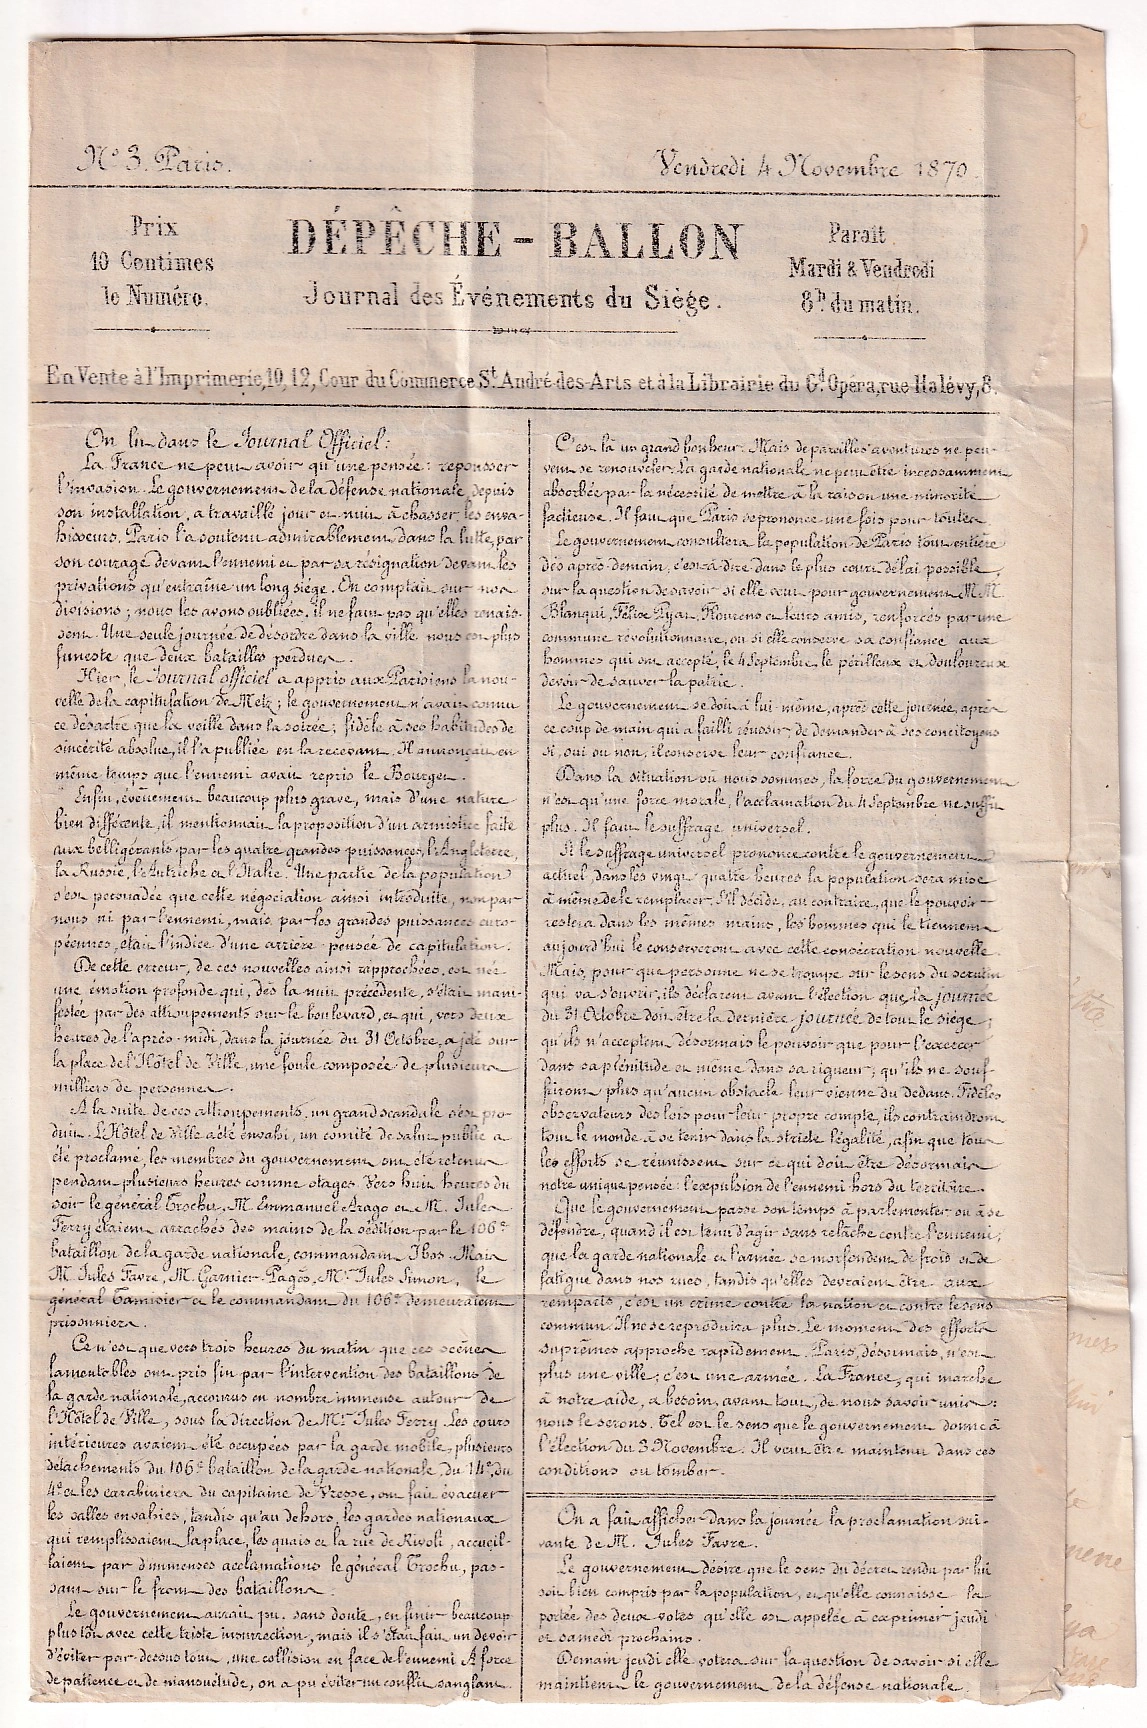 N° 3. Paris.
Vendredi 4 Novembre 1870.
Prix
10 Centimes
le Numéro.
DÉPÊCHE - BALLON
Journal des Événements du Siège.
Parait
Mardi & Vendredi
8h du matin.
En Vente à l'Imprimerie, 10, 12, Cour du Commerce St André-des-Arts et à la Librairie du Gd Opéra, rue Halévy, 8.
On lit dans le Journal Officiel:
La France ne peut avoir qu'une pensée: repousser
l'invasion. Le gouvernement de la défense nationale, depuis
son installation, a travaillé jour et nuit à chasser les enva-
hisseurs. Paris l'a soutenu admirablement dans la lutte, par
son courage devant l'ennemi et par sa résignation devant les
privations qu'entraîne un long siége. On comptait sur nos
divisions; nous les avons oubliées, il ne faut pas qu'elles renais-
sent. Une seule journée de désordre dans la ville nous est plus
funeste que deux batailles perdues.
Hier, le Journal officiel a appris aux Parisiens la nou-
velle de la capitulation de Metz; le gouvernement n'avait connu
ce désastre que la veille dans la soirée; fidèle à ses habitudes de
sincérité absolue, il l'a publiée en la recevant. Il annonçait en
même temps que l'ennemi avait repris le Bourget.
Enfin, évènement beaucoup plus grave, mais d'une nature
bien différente, il mentionnait la proposition d'un armistice faite
aux belligérants par les quatre grandes puissances, l'Angleterre,
la Russie, l'Autriche et l'Italie. Une partie de la population
s'est persuadée que cette négociation ainsi introduite, non par
nous ni par l'ennemi, mais par les grandes puissances euro-
péennes, était l'indice d'une arrière-pensée de capitulation.
De cette erreur, de ces nouvelles ainsi rapprochées, est née
une émotion profonde qui, dès la nuit précédente, s'était mani-
festée par des attroupements sur le boulevard, et qui, vers deux
heures de l'après-midi, dans la journée du 31 Octobre, a jeté sur
la place de l'Hôtel de Ville, une foule composée de plusieurs
milliers de personnes.
A la suite de ces attroupements, un grand scandale s'est pro-
duit. L'Hôtel de Ville a été envahi, un comité de salut public a
été proclamé, les membres du gouvernement ont été retenus
pendant plusieurs heures comme otages. Vers huit heures du
soir le général Trochu, M. Emmanuel Arago et M. Jules
Ferry étaient arrachés des mains de la sédition par le 106e
bataillon de la garde nationale, commandant Ibos. Mais
M. Jules Favre, M. Garnier-Pagès, Mr Jules Simon, le
général Tamisier et le commandant du 106e demeuraient
prisonniers.
Ce n'est que vers trois heures du matin que ces scènes
lamentables ont pris fin par l'intervention des bataillons de
la garde nationale, accourus en nombre immense autour de
l'Hôtel de Ville, sous la direction de Mr Jules Ferry. Les cours
intérieures avaient été occupées par la garde mobile, plusieurs
détachements du 106e bataillon de la garde nationale, du 14e, du
4e et les carabiniers du capitaine de Vresse, ont fait évacuer
les salles envahies, tandis qu'au dehors, les gardes nationaux
qui remplissaient la place, les quais et la rue de Rivoli, accueil-
laient par d'immenses acclamations le général Trochu, pas-
sant sur le front des bataillons.
Le gouvernement aurait pu, sans doute, en finir beaucoup
plus tôt avec cette triste insurrection, mais il s'était fait un devoir
d'éviter par-dessus tout, une collision en face de l'ennemi. A force
de patience et de mansuétude, on a pu éviter un conflit sanglant.
C'est là un grand bonheur. Mais de pareilles aventures ne peu-
vent se renouveler. La garde nationale ne peut être incessamment
absorbée par la nécessité de mettre à la raison une minorité
factieuse. Il faut que Paris se prononce une fois pour toutes.
Le gouvernement consultera la population de Paris tout entière
dès après-demain, c'est-à-dire dans le plus court délai possible,
sur la question de savoir si elle veut pour gouvernement M.M.
Blanqui, Félix Pyat, Flourens et leurs amis, renforcés par une
commune révolutionnaire, ou si elle conserve sa confiance aux
hommes qui ont accepté, le 4 Septembre, le périlleux et douloureux
devoir de sauver la patrie.
Le gouvernement se doit à lui-même, après cette journée, après
ce coup de main qui a failli réussir, de demander à ses concitoyens
si, oui ou non, il conserve leur confiance.
Dans la situation où nous sommes, la force du gouvernement
n'est qu'une force morale, l'acclamation du 4 Septembre ne suffit
plus. Il faut le suffrage universel.
Si le suffrage universel prononce contre le gouvernement
actuel, dans les vingt-quatre heures la population sera mise
à même de le remplacer. S'il décide, au contraire, que le pouvoir
restera dans les mêmes mains, les hommes qui le tiennent
aujourd'hui le conserveront avec cette consécration nouvelle.
Mais, pour que personne ne se trompe sur le sens du scrutin
qui va s'ouvrir, ils déclarent avant l'élection que la journée
du 31 Octobre doit être la dernière journée de tout le siège;
qu'ils n'acceptent désormais le pouvoir que pour l'exercer
dans sa plénitude et même dans sa rigueur; qu'ils ne souf-
friront plus qu'aucun obstacle leur vienne du dedans. Fidèles
observateurs des lois pour leur propre compte, ils contraindront
tout le monde à se tenir dans la stricte légalité, afin que tous
les efforts se réunissent sur ce qui doit être désormais
notre unique pensée: l'expulsion de l'ennemi hors du territoire.
Que le gouvernement passe son temps à parlementer ou à se
défendre, quand il est tenu d'agir sans relâche contre l'ennemi;
que la garde nationale et l'armée se morfondent de froid et de
fatigue dans nos rues, tandis qu'elles devraient être aux
remparts, c'est un crime contre la nation et contre le sens
commun. Il ne se reproduira plus. Le moment des efforts
suprêmes approche rapidement. Paris, désormais, n'est
plus une ville; c'est une armée. La France, qui marche
à notre aide, a besoin, avant tout, de nous savoir unis:
nous le serons. Tel est le sens que le gouvernement donne à
l'élection du 3 Novembre. Il veut être maintenu dans ces
conditions ou tomber.
On a fait afficher dans la journée la proclamation sui-
vante de M. Jules Favre.
Le gouvernement désire que le sens du décret rendu par lui
soit bien compris par la population, et qu'elle connaisse la
portée des deux votes qu'elle est appelée à exprimer jeudi
et samedi prochains.
Demain jeudi elle votera sur la question de savoir si elle
maintient le gouvernement de la défense nationale.